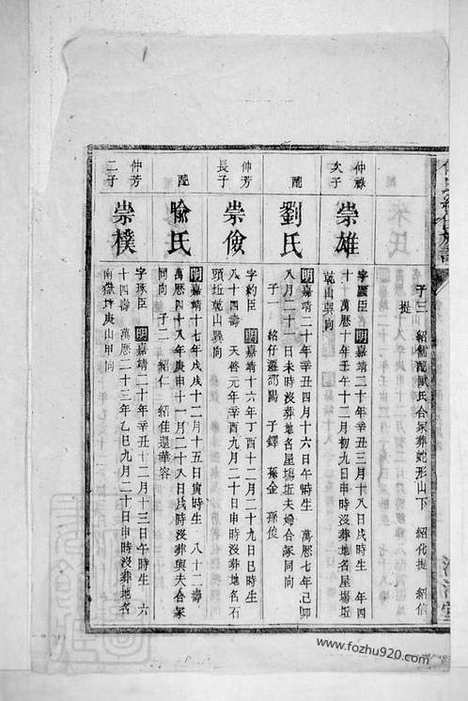 子三 紹勳配陳氏合冢葬蛇形山下 紹代挺 紹信
挺
仲祿
次子
崇雄
字震臣 明嘉靖二十年辛丑三月十八日戌時生 年四
十 萬曆十年壬午十二月初九日申時沒葬地名屋場坵
乾山巽向
配
劉氏
明嘉靖二十年辛丑四月十六日午時生 萬曆七年己卯
八月二十一日未時沒葬地名屋場坵夫婦合冢同向
子一 紹仔遷沔陽 子鐸 孫金 孫俊
仲芳
長子
崇儉
字約臣 明嘉靖十六年丁酉十二月二十九日巳時生
八十四壽 天啟元年辛酉九月二十日申時沒葬地名石
頭坵山巽向
配
喻氏
明嘉靖十七年戊戌十二月十五日寅時生 八十二壽
萬曆四十八年庚申十一月二十八日戌時沒葬與夫合冢
同向 子二 紹仁 紹佳遷華容
仲芳
二子
崇樸
字琢臣 明嘉靖二十年辛丑十二月十三日午時生 六
十四壽 萬曆二十三年乙巳九月二十日申時沒葬地名
南嶽坵庚山甲向
www.fozhu920.com